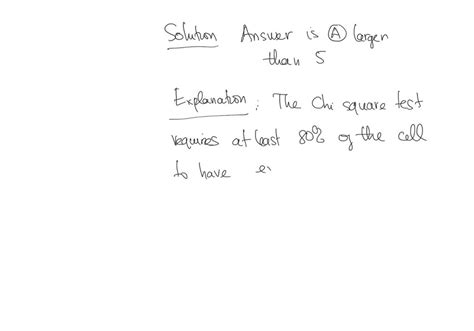 Solution Answer is Ⓐ larger
than 5
Explanation: The Chi square test
requires at least 80% of the cell
to have ex